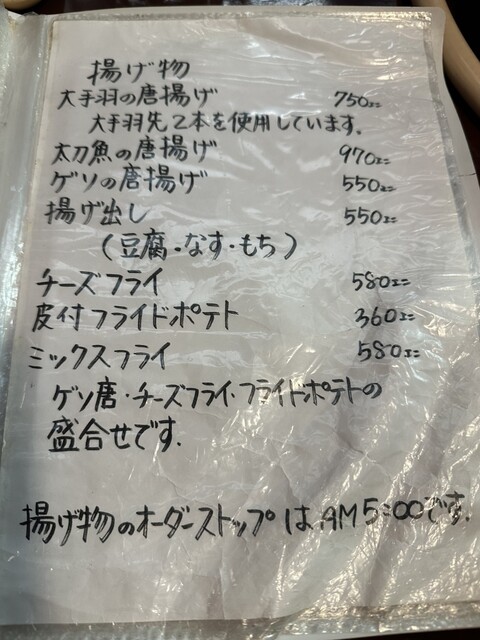 揚げ物
大手羽の唐揚げ 750ヱ
大手羽先2本を使用しています.
太刀魚の唐揚げ 970ヱ
ゲソの唐揚げ 550ヱ
揚げ出し 550ヱ
(豆腐・なす・もち)
チーズフライ 580ヱ
皮付フライドポテト 360ヱ
ミックスフライ 580ヱ
ゲソ唐・チーズフライ・フライドポテトの
盛合せです.
揚げ物のオーダーストップは AM5:00です.